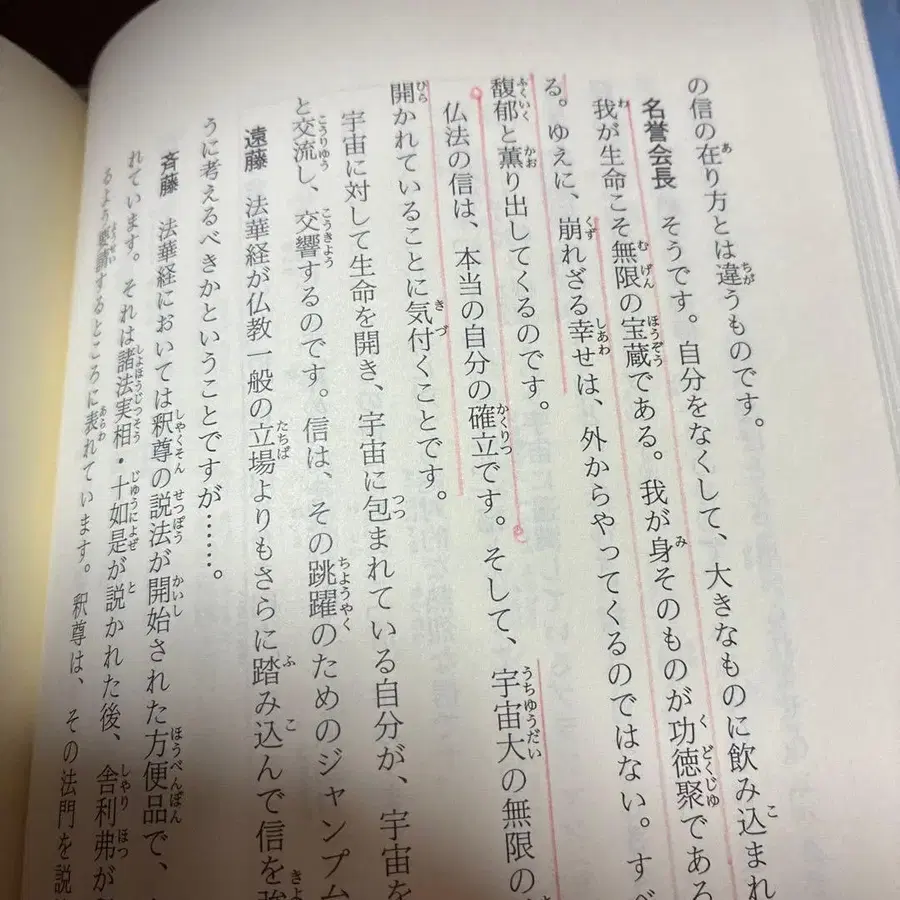 の信の在り方とは違うものです。
名誉会長　そうです。自分をなくして、大きなものに飲み込まれ
我が生命こそ無限の宝蔵である。我が身そのものが功徳聚である
る。ゆえに、崩れざる幸せは、外からやってくるのではない。すべ
馥郁と薫り出してくるのです。
仏法の信は、本当の自分の確立です。そして、宇宙大の無限の
開かれていることに気付くことです。
宇宙に対して生命を開き、宇宙に包まれている自分が、宇宙を
と交流し、交響するのです。信は、その跳躍のためのジャンプ
遠藤　法華経が仏教一般の立場よりもさらに踏み込んで信を強
うに考えるべきかということですが……。
斉藤　法華経においては釈尊の説法が開始された方便品で、
れています。それは諸法実相・十如是が説かれた後、舎利弗が
るよう要請するところに表れています。釈尊は、その法門を説